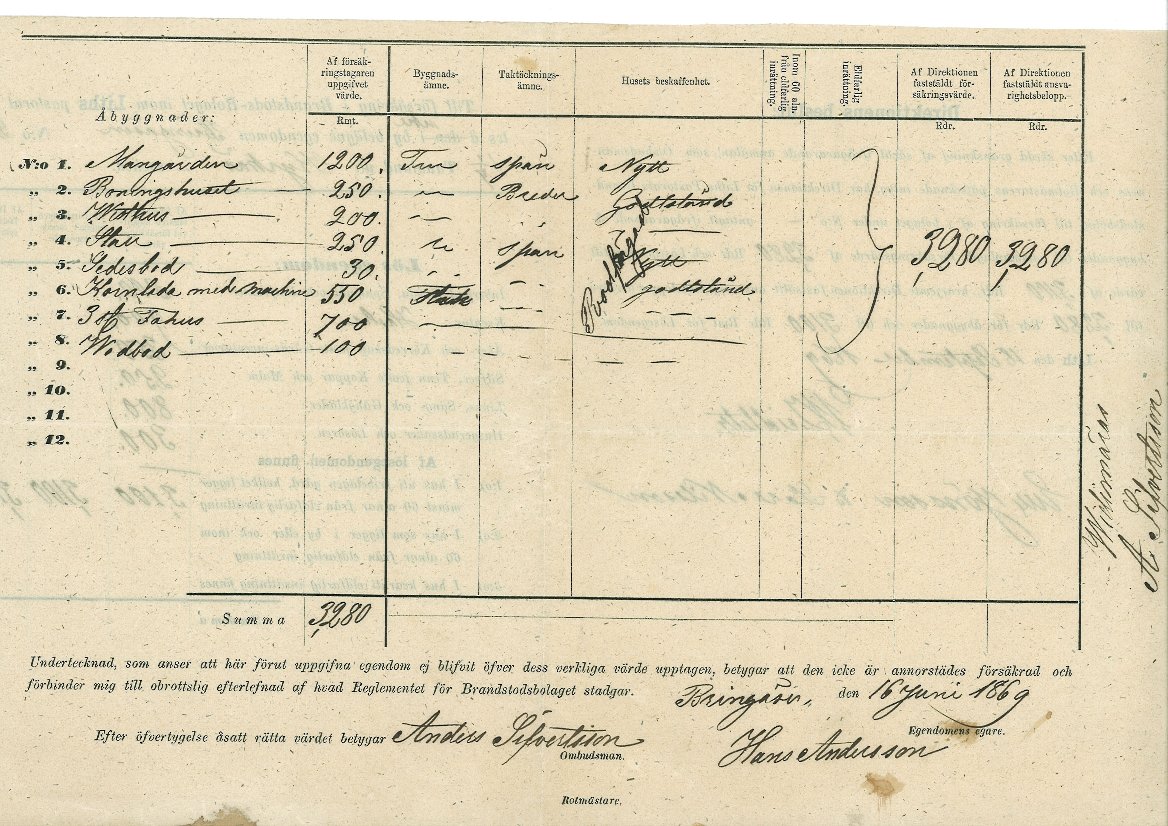 Åbyggnader:
Af försäk-
ringstagaren
uppgifvet
värde.
Rmt.
Byggnads-
ämne.
Taktäcknings-
ämne.
Husets beskaffenhet.
Inom 60 aln
från eldfarlig
inrättning.
Eldfarlig
inrättning.
Af Direktionen
faststäldt för-
säkringsvärde.
Rdr.
Af Direktionen
faststäldt ansva-
righetsbelopp.
Rdr.
N:o 1. Mangården 1200. spån Nytt
„ 2. Boningshuset 250. Breder godtstånd
„ 3. 200.
„ 4. Stall 250 spån
„ 5. 30. Nytt
„ 6. Kornlada med machine 550 godtstånd
„ 7. 3 st Fähus 700
„ 8. Wedbod 100
„ 9.
„ 10.
„ 11.
„ 12.
3280 3280
Summa 3280
Undertecknad, som anser att här förut uppgifna egendom ej blifvit öfver dess verkliga värde upptagen, betygar att den icke är annorstädes försäkrad och
förbinder mig till obrottslig efterlefnad af hvad Reglementet för Brandstodsbolaget stadgar. Bringåsen, den 16 Juni 1869
Egendomens egare.
Efter öfvertygelse åsatt rätta värdet betygar Anders Silvertsson Hans Andersson
Ombudsman.
Rotmästare.